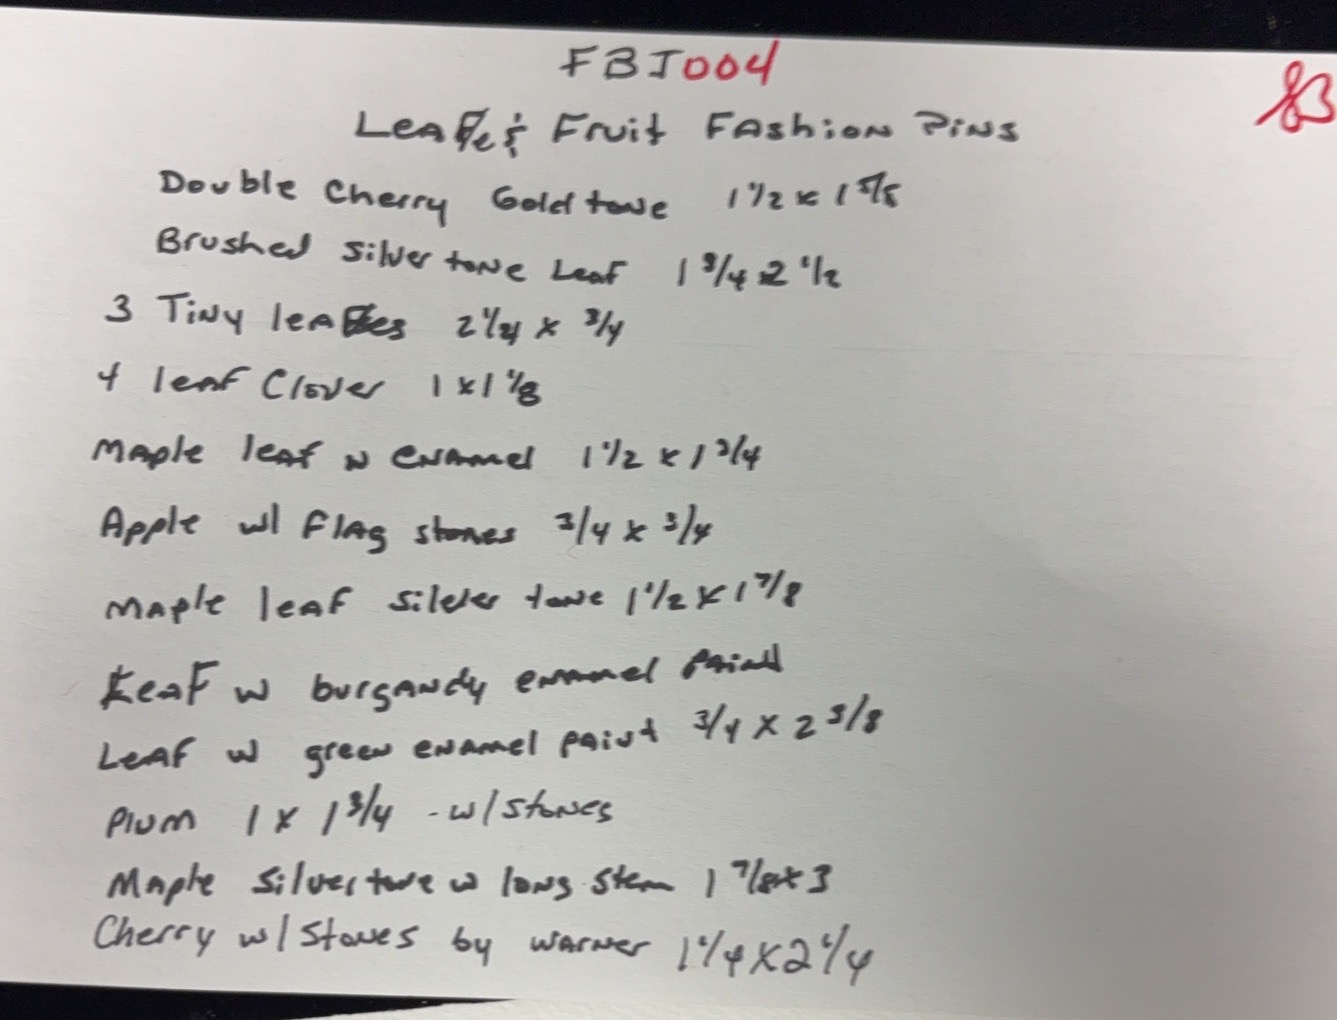 FBJ004
Leafe & Fruit Fashion Pins
Double Cherry Gold tone 1 1/2 x 1 5/8
Brushed silver tone Leaf 1 3/4 x 2 1/2
3 Tiny leaves 2 1/4 x 3/4
4 leaf Clover 1 x 1 1/8
Maple leaf w enamel 1 1/2 x 1 3/4
Apple w/ Flag stones 3/4 x 3/4
Maple leaf silver tone 1 1/2 x 1 7/8
Leaf w burgandy enamel paint
Leaf w green enamel paint 3/4 x 2 5/8
Plum 1 x 1 3/4 - w/ stones
Maple Silver tone w long stem 1 7/8 x 3
Cherry w/ Stones by Warner 1 1/4 x 2 1/4